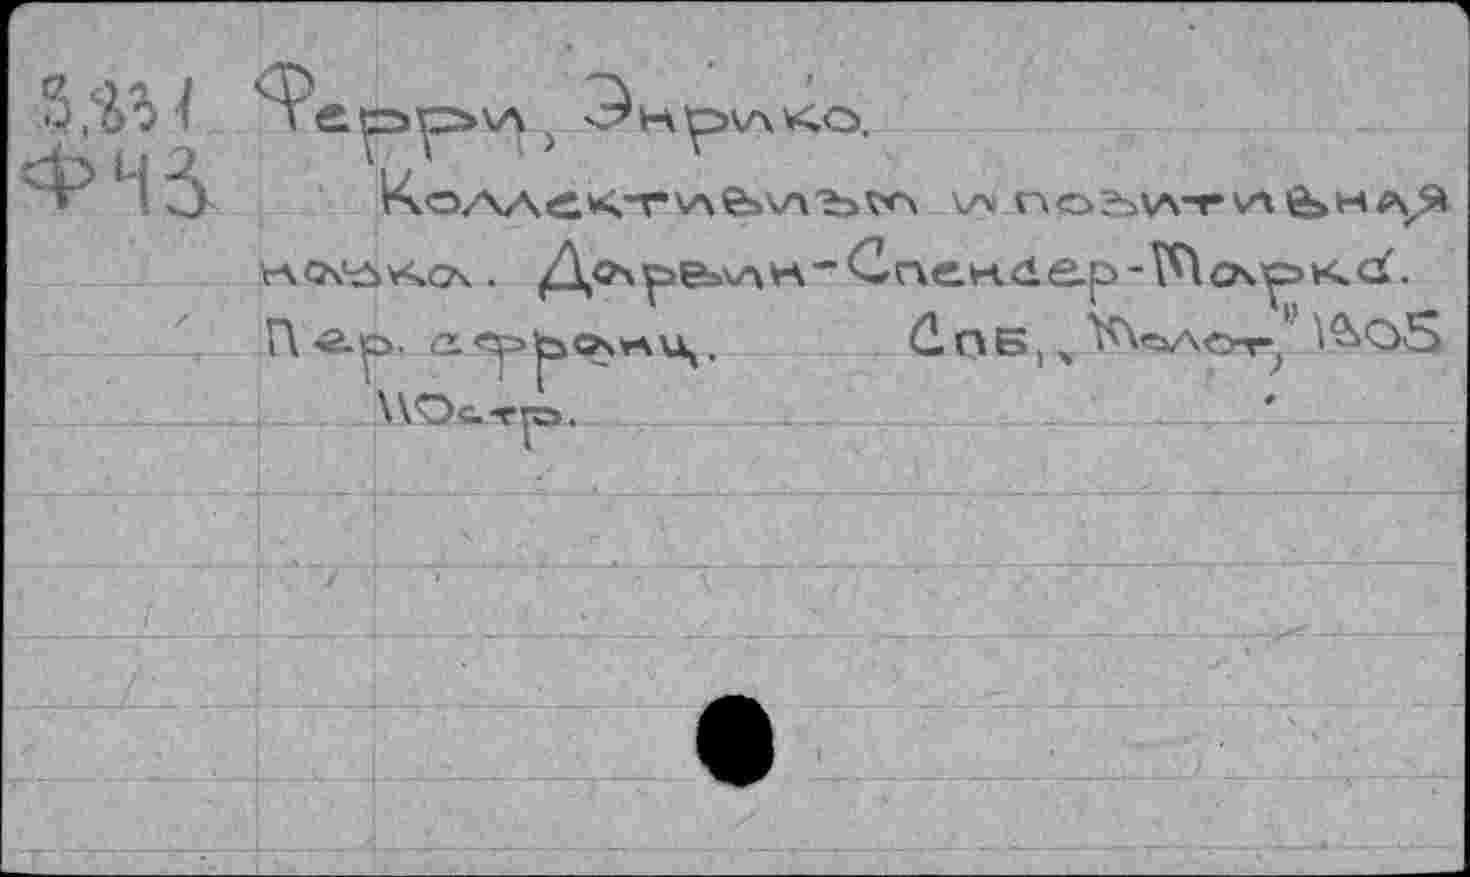 3,231 Ферри, Энрико.
Ф43 Коллективизм и позитивная
наука. Дарвин-Спендер-Маркс.
Пер. с франц. СПБ., „Молот," 1905
110стр.